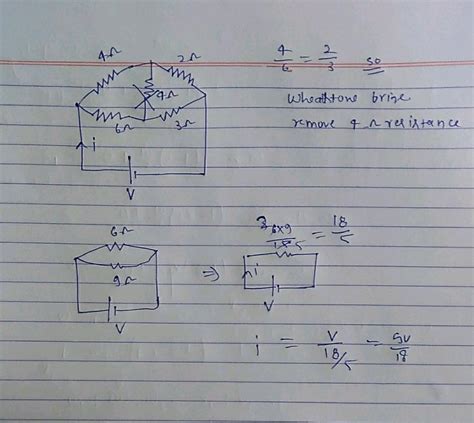 4Ω 2Ω
4Ω
6Ω 3Ω
i
V
4/6 = 2/3 so
wheatstone brize
remove 4 Ω resistance
6Ω
9Ω
V
⇒
3 6×9/15 5 = 18/5
i
V
i = V/18/5 = 5V/18